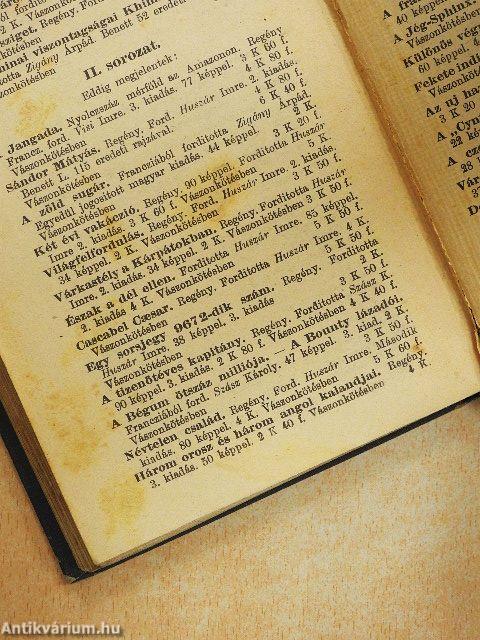 hinai viszontagságai Khin
totta Zigány Árpád. Benett 52 eredeti
Vászonkötésben
II. sorozat.
Eddig megjelentek:
Jangada. Nyolczszáz mérföld az Amazonon. Regény.
Francz. ford. Vizi Imre. 3. kiadás. 77 képpel. 3 K 60 f.
Vászonkötésben 4 K 80 f.
Sándor Mátyás. Regény. Ford. Huszár Imre. 2. kiadás.
Benett L. 115 eredeti rajzával. 4 K 80 f.
Vászonkötésben 6 K 40 f.
A zöld sugár. Francziából forditotta Zigány Árpád.
Egyedül jogositott magyar kiadás. 44 képpel. 2 K.
Vászonkötésben 3 K 20 f.
Két évi vakáczió. Regény. 90 képpel. Forditotta Huszár
Imre 2. kiadás. 3 K 60 f. Vászonkötésben 5 K 20 f.
Világfelfordulás. Regény. Ford. Huszár Imre. 2. kiadás.
34 képpel. 2 K. Vászonkötésben 3 K 20 f.
Várkastély a Kárpátokban. Regény. Forditotta Huszár
Imre. 2. kiadás. 34 képpel. 2 K. Vászonkötésben 3 K 50 f.
Észak a dél ellen. Forditotta Huszár Imre. 85 képpel.
2. kiadás 4 K. Vászonkötésben 5 K 50 f.
Cascabel Cæsar. Regény. Forditotta Huszár Imre. 4 K.
Vászonkötésben 5 K 50 f.
Egy sorsjegy 9672-dik szám. Regény. Forditotta
Huszár Imre. 38 képpel. 3. kiadás 2 K.
Vászonkötésben 3 K 50 f.
A tizenötéves kapitány. Regény. Forditotta Szász K.
90 képpel. 3. kiadás. 2 K 80 f. Vászonkötésben 4 K 40 f.
A Bégum ötszáz milliója. — A Bounty lázadói.
Francziából ford. Szász Károly. 47 képpel. 3 kiad. 2 K.
Vászonkötésben 3 K 50 f.
Névtelen család. Regény. Ford. Huszár Imre. Második
kiadás. 80 képpel. 4 K. Vászonkötésben 5 K 60 f.
Három orosz és három angol kalandjai. Regény.
3. kiadás. 50 képpel. 2 K 40 f. Vászonkötésben 4 K.
40 képpel
Vászonkötésben
A Jég-Sphinx.
Különös vég
60 képpel. 4
Vászonkötés
Fekete indi
Az uj haz
A „Cyn
22 kép
Antikvárium.hu